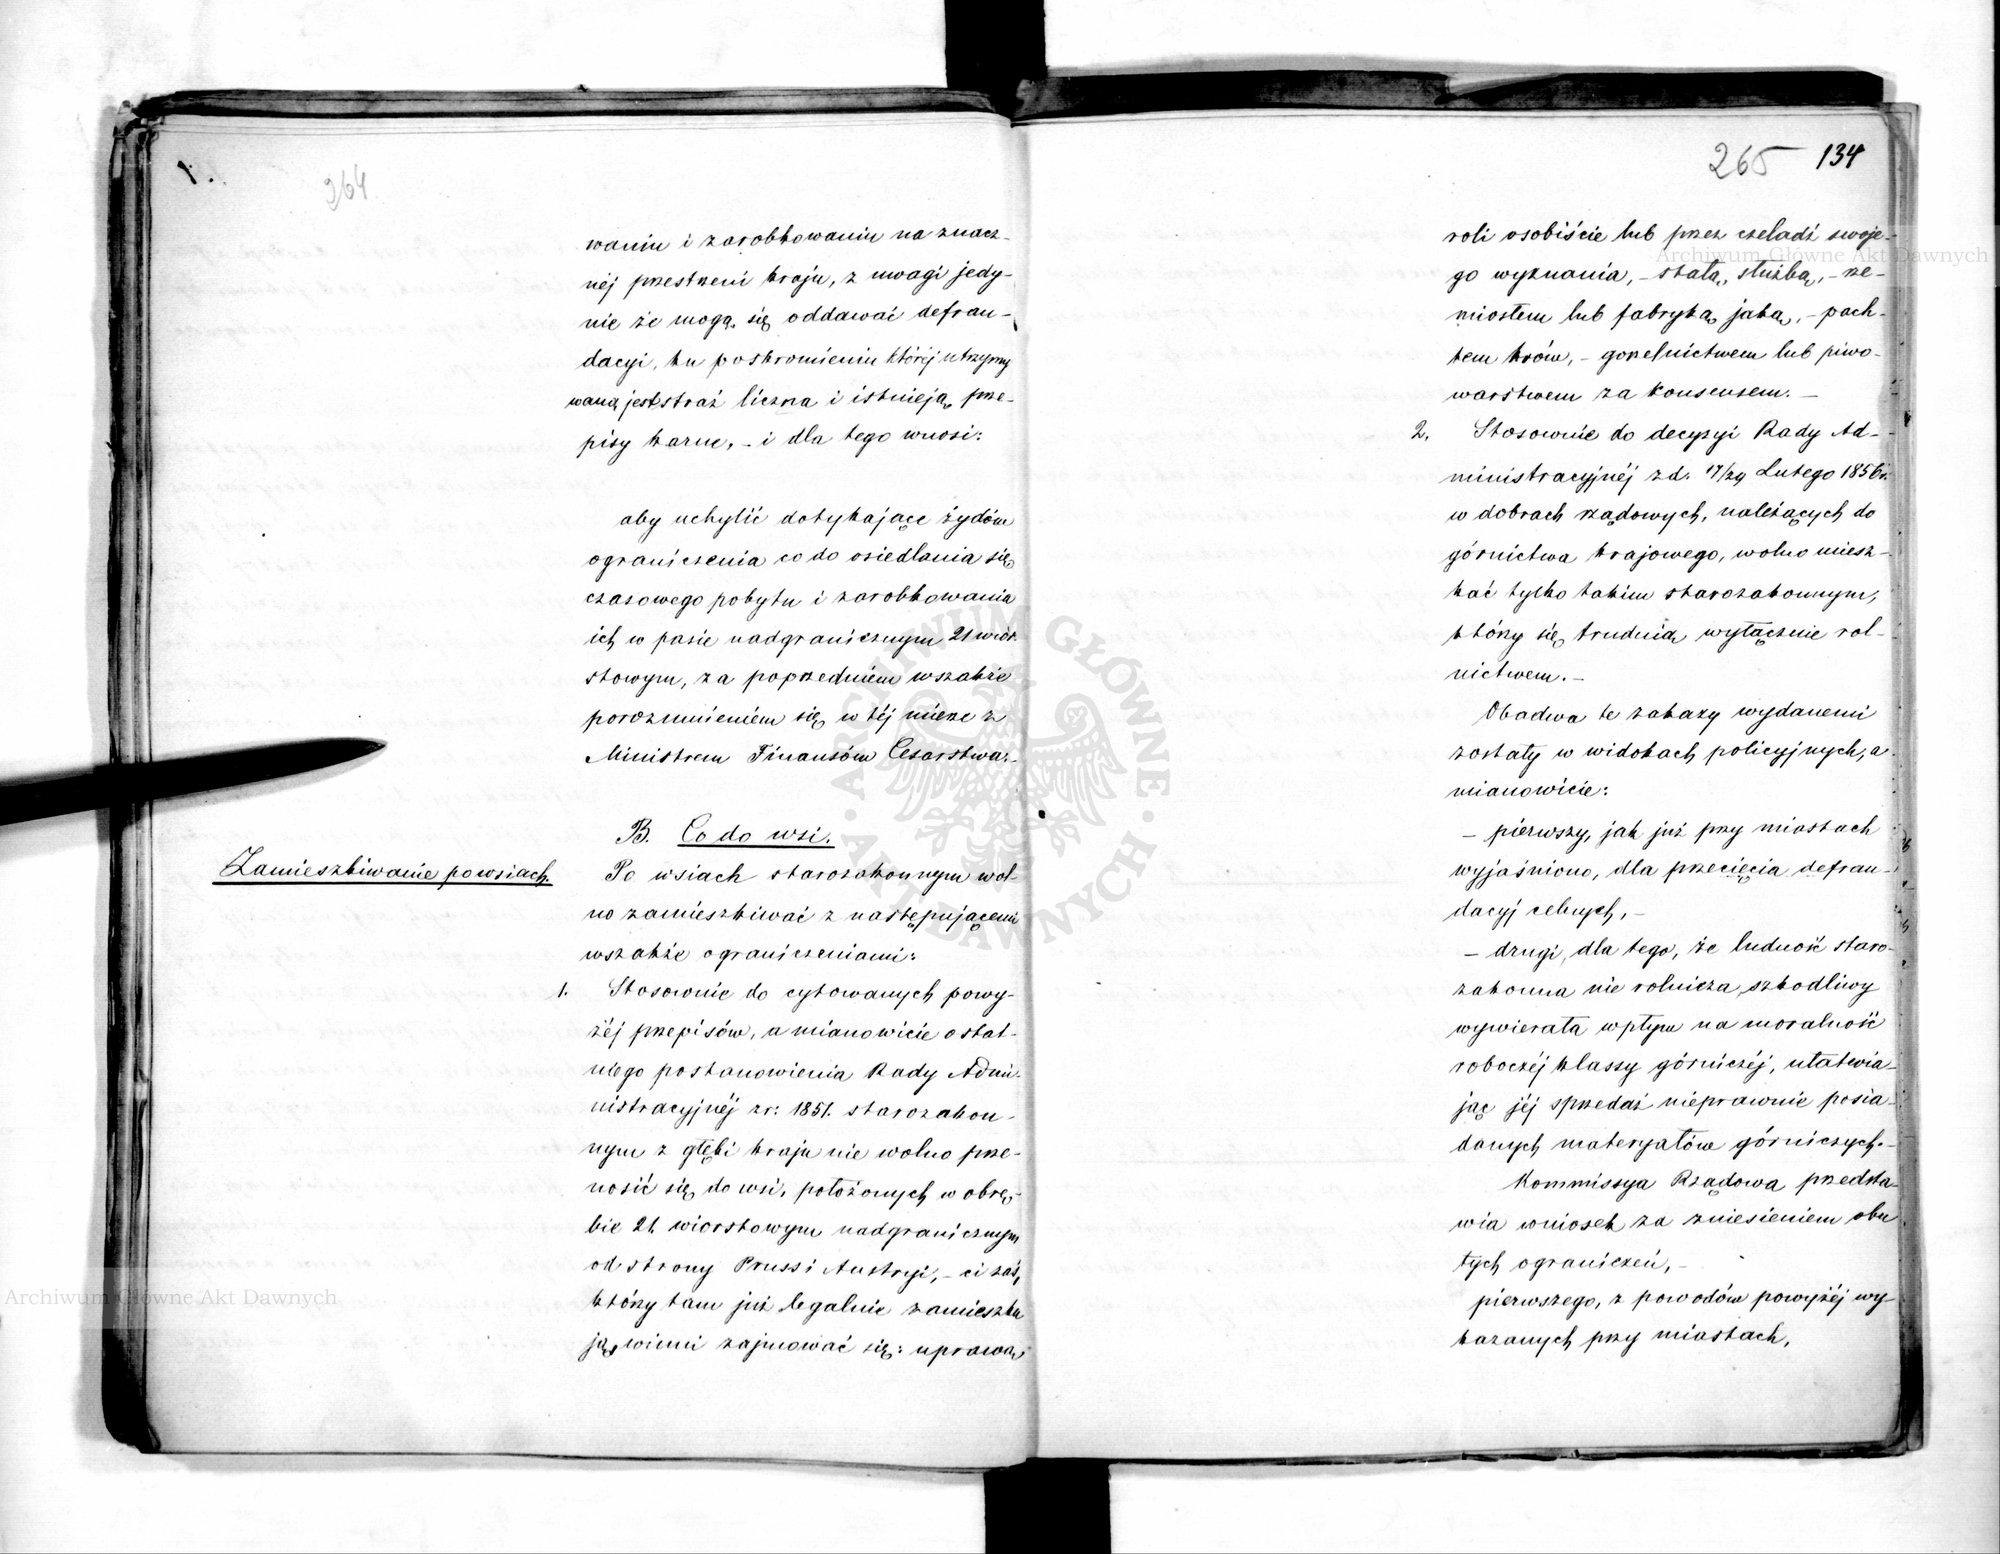 264
waniu i zarobkowaniu na znacz-
nej przestrzeni kraju, z uwagi jedy-
nie że mogą się oddawać defrau-
dacyi, ku poskromieniu której utrzymy
waną jest straż liczna i istnieją prze-
pisy karne, - i dla tego wnosi:
aby uchylić dotykające żydów
ograniczenia co do osiedlania się
czasowego pobytu i zarobkowania
ich w pasie nadgranicznym 21 wior-
stowym, za poprzedniem wszakże
porozumieniem się w téj mierze z
Ministrem Finansów Cesarstwa.-
B. Co do wsi.
Zamieszkiwanie po wsiach.
Po wsiach starozakonnym wol-
no zamieszkiwać z następującemi
wszakże ograniczeniami:
1. Stosownie do cytowanych powy-
żéj przepisów, a mianowicie ostat-
niego postanowienia Rady Admi-
nistracyjnéj z r: 1851. starozakon-
nym z głębi kraju nie wolno prze-
nosić się do wsi, położonych w obrę-
bie 21 wiorstowym nadgranicznym
od strony Pruss i Austryi, - ci zaś,
którzy tam już legalnie zamieszku
ją, winni zajmować się: uprawą
265 134
roli osobiście lub przez czeladź swoje-
go wyznania, - stałą, służbą, - rze-
miosłem lub fabryką jaką, - pach-
tem krów, - gorzelnictwem lub piwo-
warstwem za konsensem. -
2. Stosownie do decyzyi Rady Ad-
ministracyjnéj z d. 17/29 Lutego 1856 r.
w dobrach rządowych, należących do
górnictwa krajowego, wolno miesz-
kać tylko takim starozakonnym,
którzy się trudnią wyłącznie rol-
nictwem. -
Obadwa te zakazy wydanemi
zostały w widokach policyjnych, a
mianowicie:
- pierwszy, jak już przy miastach
wyjaśniono, dla przecięcia defrau-
dacyj celnych, -
- drugi, dla tego, że ludność staro-
zakonna nie rolnicza, szkodliwy
wywierała wpływ na moralność
roboczéj klassy górniczéj, ułatwia-
jąc jéj sprzedaż nieprawnie posia-
danych materyałów górniczych. -
Kommissya Rządowa przedsta-
wia wniosek za zniesieniem obu
tych ograniczeń, -
pierwszego, z powodów powyżéj wy-
kazanych przy miastach,
Archiwum Główne Akt Dawnych
Archiwum Główne Akt Dawnych
ARCHIWUM GŁÓWNE AKT DAWNYCH